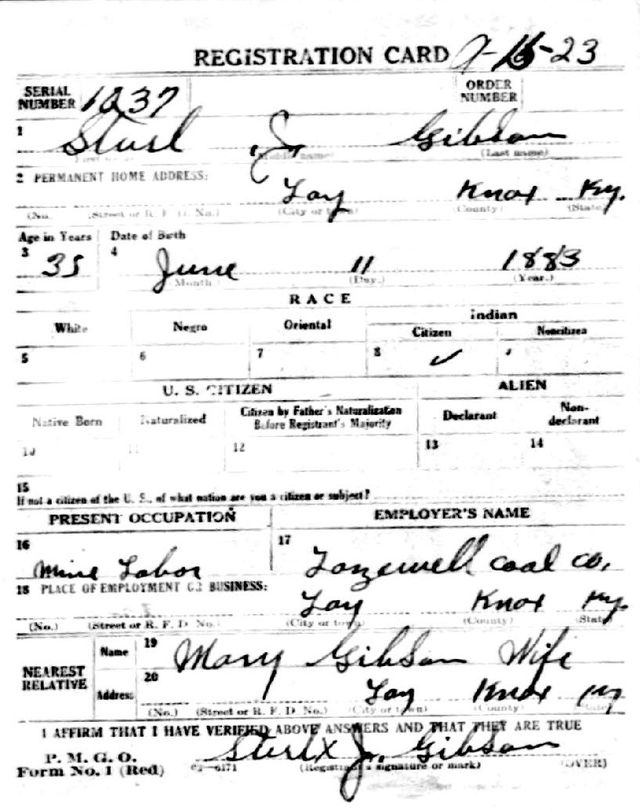 REGISTRATION CARD 9-16-23
SERIAL NUMBER 1237 ORDER NUMBER
1 Sturl J. Gibson
(Middle name) (Last name)
2 PERMANENT HOME ADDRESS:
Toy Knox Ky.
(No. (Street or R. F. D. No.) (City or town) (County) (State)
Age in Years Date of Birth
3 35 4 June 11 1883
(Month) (Day.) (Year.)
RACE
White Negro Oriental Indian
Citizen Noncitizen
5 6 7 8 ✓
U. S. CITIZEN ALIEN
Native Born Naturalized Citizen by Father's Naturalization Before Registrant's Majority Declarant Non-declarant
10 11 12 13 14
15
If not a citizen of the U. S., of what nation are you a citizen or subject?
PRESENT OCCUPATION EMPLOYER'S NAME
16 Mine Labor 17 Tazewell coal co.
18 PLACE OF EMPLOYMENT OR BUSINESS:
Toy Knox Ky
(No.) (Street or R. F. D. No.) (City or town) (County) (State)
NEAREST RELATIVE
Name 19 Mary Gibson Wife
Address 20 Toy Knox Ky
(No.) (Street or R. F. D. No.) (City or town) (County) (State)
I AFFIRM THAT I HAVE VERIFIED ABOVE ANSWERS AND THAT THEY ARE TRUE
P. M. G. O.
Form No. 1 (Red) J. Gibson
(Registrant's signature or mark) (OVER)